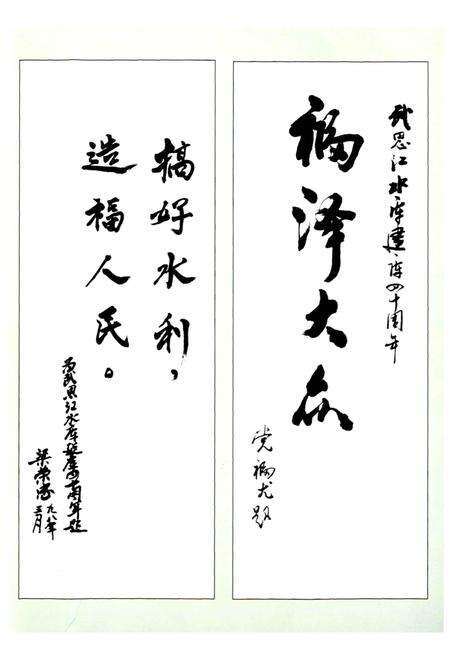 武思江水库建库四十周年
福泽大众
党福尤题
搞好水利，
造福人民。
为武思江水库建库四十周年题
梁荣忠
九八年
三月